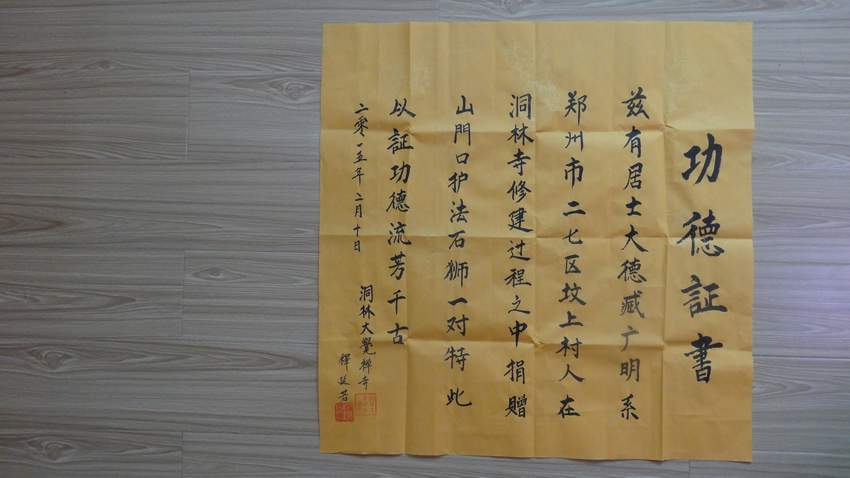 功德証書
兹有居士大德臧广明系
郑州市二七区坟上村人在
洞林寺修建过程之中捐赠
山門口护法石狮一对特此
以証功德流芳千古
二零一五年二月十日
洞林大覺禅寺
釋延